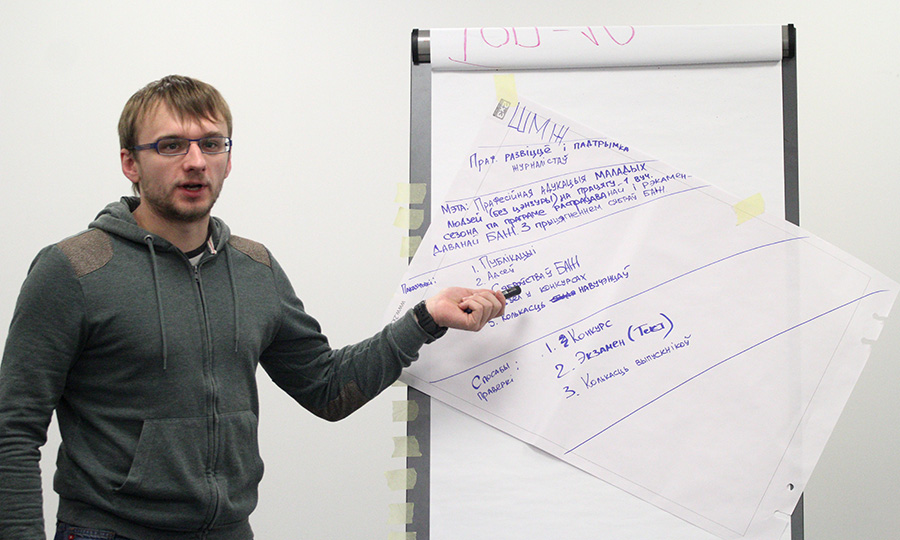 ТОП-10
ШМЖ
Праф. развіццё і падтрымка
журналістаў
Мэта: Прафесійная адукацыя маладых
людзей (без цэнзуры) на працягу 1 вуч.
сезона па праграме распрацаванай і рэкамен-
даванай БАЖ з прыцягненнем сяброў БАЖ
1. Публікацыі
2. Адсеў
Сяброўства ў БАЖ
у конкурсах
5. Колькасць навучэнцаў
Спосабы
праверкі:
1. Конкурс
2. Экзамен (Тэст)
3. Колькасць выпускнікоў